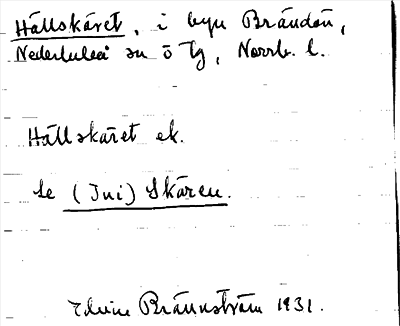 Hällskäret, i byn Brändön,
Nederluleå sn ö tg, Norrb. l.
Hällskäret ek.
Se (Ini) Skären.
Brännström 1931.